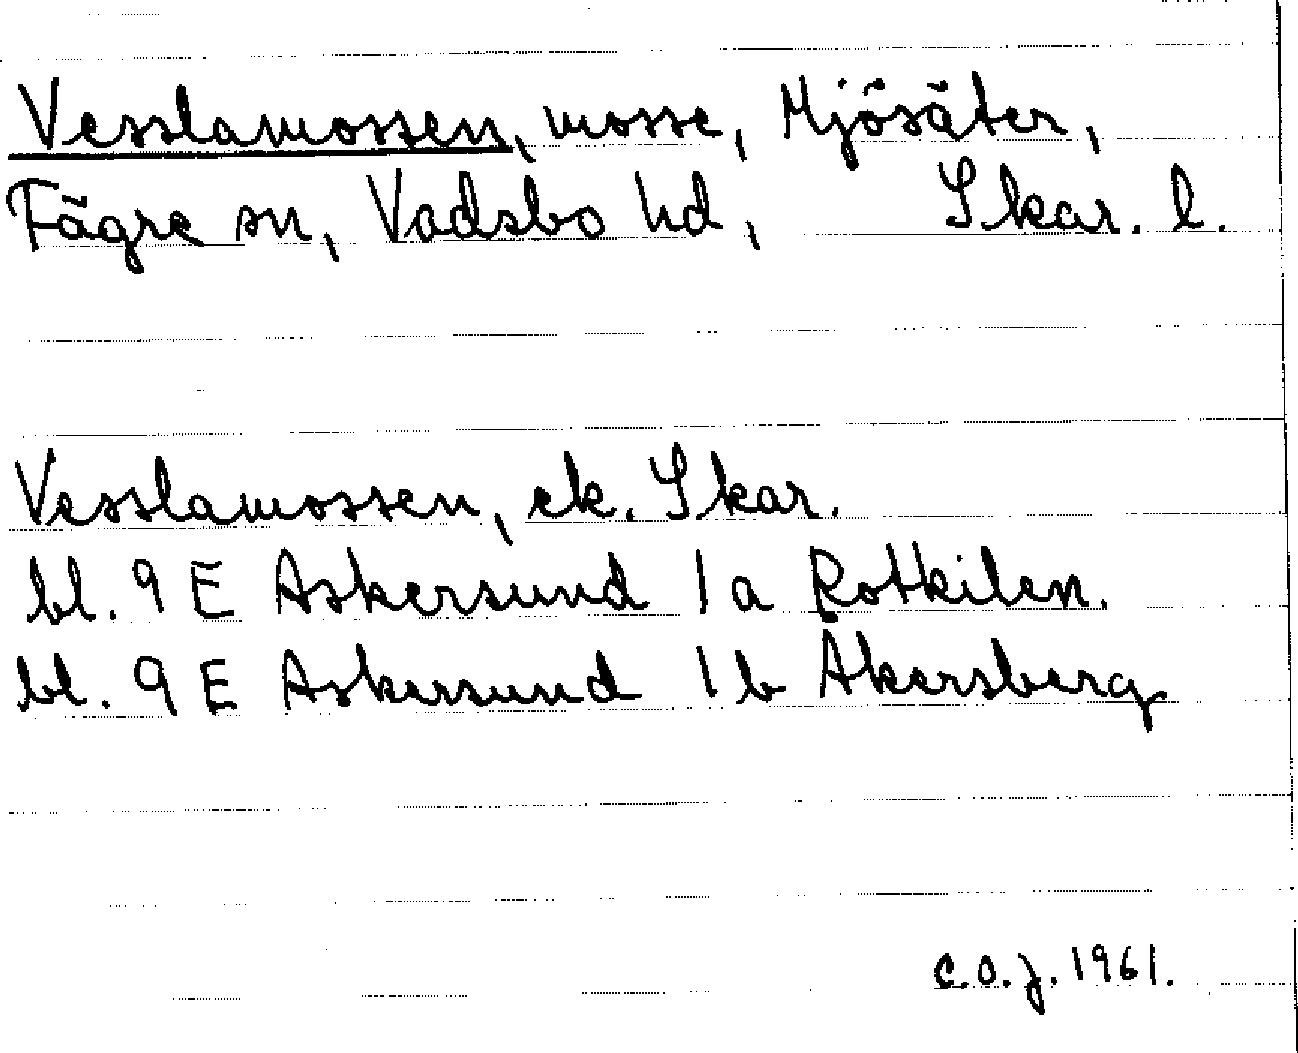 Vesslamossen, mosse, Mjösäter,
Fägre sn, Vadsbo hd, Skar. l.
Vesslamossen, ek. Skar.
bl. 9 E Askersund 1 a Rotkilen.
bl. 9 E Askersund 1 b Åkersberg
C.O.J. 1961.